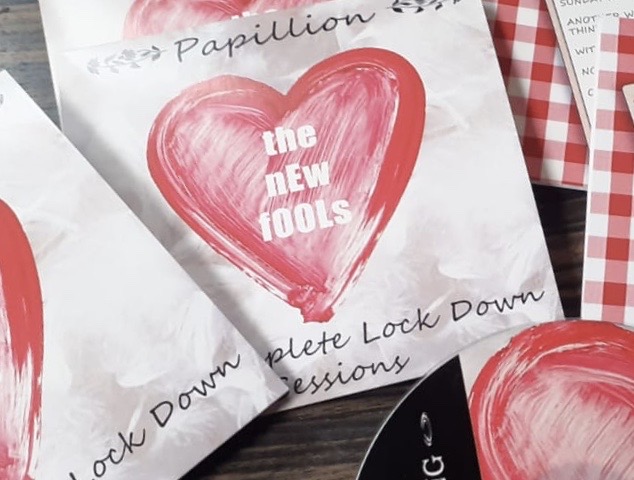 Papillion
the
nEw
fOOLs
plete Lock Down
essions
Lock Down
SUNDAY
ANOTHER W
THIN
WIT
NO
NG